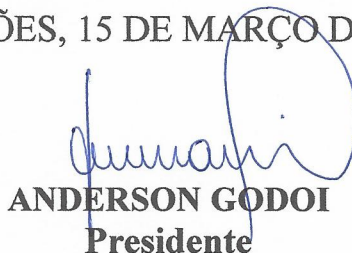 ÕES, 15 DE MARÇO D
ANDERSON GODOI
Presidente